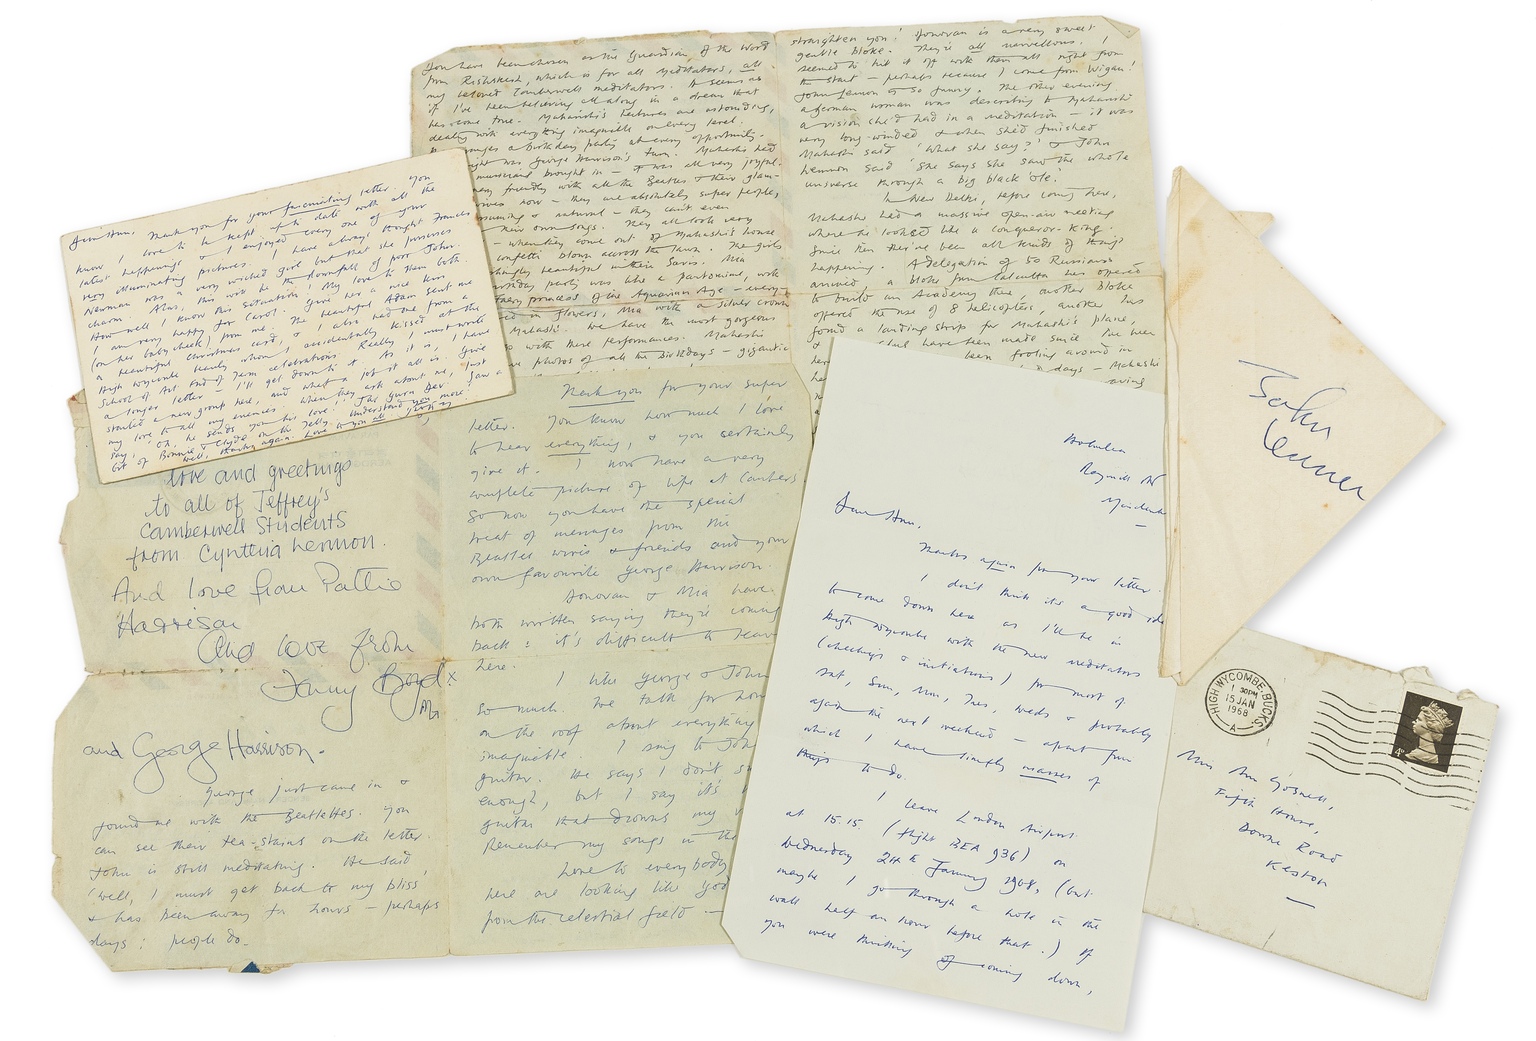 You have been chosen as the Guardian of the Word
from Rishikesh, which is for all Meditators, all
my beloved Camberwell meditators. It seems as
if I've been believing all along in a dream that
has come true. Maharishi's lectures are astounding,
dealing with everything imaginable on every level.
a birthday party at every opportunity.
night was George Harrison's turn. Maharishi had
brought in – it was all very joyful.
very friendly with all the Beatles & their glam-
wives now – they are absolutely super people,
& natural – they can't even
their own songs. They all look very
– when they come out of Maharishi's house
confetti blown across the lawn. The girls
beautiful in their Saris. Mia
birthday party was like a pantomime, with
princess of the Aquarian Age – every
in flowers, Mia with a silver crown
Maharishi. We have the most gorgeous
with these performances. Maharishi
photos of all the Birthdays – gigantic
straighten you! Donovan is a very sweet
gentle bloke. They're all marvellous. I
seemed to hit it off with them all right from
the start – perhaps because I come from Wigan!
John Lennon is so funny. The other evening
a German woman was describing to Maharishi
a vision she'd had in a meditation – it was
very long-winded & when she'd finished
Maharishi said 'What she say?' & John
Lennon said 'She says she saw the whole
universe through a big black 'ole.'
In New Delhi, before coming here,
Maharishi had a massive open-air meeting
where he looked like a conqueror-King.
Since then there've been all kinds of things
happening. A delegation of 50 Russians
arrived, a bloke from Calcutta has offered
to build an Academy there, another bloke
offered the use of 8 helicopters, another has
found a landing strip for Maharishi's plane,
have been made since I've been
been fooling around in
days – Maharishi
Dear Ann, Thank you for your fascinating letter. You
know I love to be kept up to date with all the
latest happenings & I enjoyed every one of your
very illuminating pictures. I have always thought Frances
Newman was a very wicked girl but that she possesses
charm. Alas, this will be the downfall of poor John.
How well I know this situation! My love to them both.
I am very happy for Carol. Give her a nice kiss
(on her baby cheek) from me. The beautiful Adam sent me
a beautiful Christmas card, & I also had one from a
High Wycombe whom I accidentally kissed at the
School of Art End of Term celebrations. Really I must write
a longer letter – I'll get down to it. As it is, I have
started a new group here, and what a job it all is. Give
my love to all my enemies. When they ask about me, just
say, 'Oh, he sends you his love.' 'Jai Guru Dev.' Saw a
bit of Bonnie & Clyde on the Telly. Understand you more.
Well, thanks again. Love to you all
love and greetings
to all of Jeffrey's
Camberwell Students
from Cynthia Lennon.
And love from Pattie
Harrison
And love from
Jenny Boyd x
and George Harrison.
George just came in &
found me with the Beatlettes. You
can see their tea-stains on the letter.
John is still meditating. He said,
'Well, I must get back to my bliss,'
& has been away for hours – perhaps
days: people do.
Thank you for your super
letter. You know how much I love
to hear everything, & you certainly
give it. I now have a very
complete picture of life at Camber
So now you have the special
treat of messages from the
Beatles wives & friends and your
own favourite George Harrison.
Donovan & Mia have
both written saying they're coming
back: it's difficult to leave
here.
I like George & John
so much. We talk for hou
on the roof about everything
imaginable. I sing to John
guitar. He says I don't
enough, but I say it's
guitar that drowns my
Remember my songs in the
Love to everybody
here are looking like god
from the celestial field –
Raymill Rd
Maidenh
Dear Ann,
Thanks again for your letter.
I don't think it's a good idea
to come down here as I'll be in
High Wycombe with the new meditators
(checkings & initiations) for most of
Sat, Sun, Mon, Tues, Weds & probably
again the next weekend – apart from
which I have simply masses of
things to do.
I leave London Airport
at 15.15. (flight BEA 936) on
Wednesday 24th January 1968, (but
maybe I go through a hole in the
wall half an hour before that.) If
you were thinking of coming down,
John
Lennon
HIGH WYCOMBE, BUCKS.
1 30PM
15 JAN
1968
A
4D
Miss Ann Gosnell,
Firth House,
Downe Road
Keston